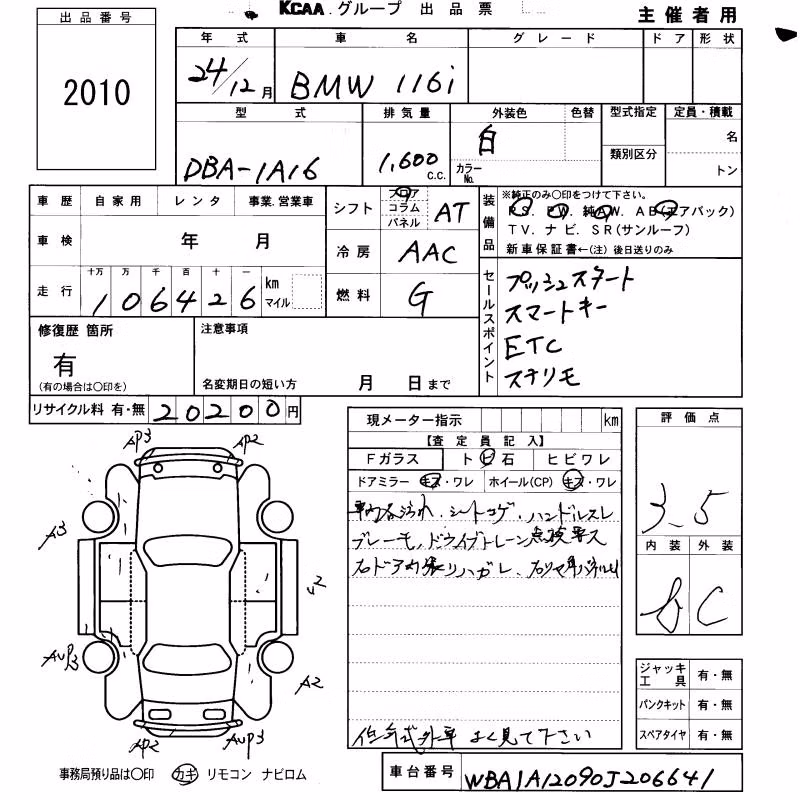 KCAA.グループ 出品票
主催者用
出品番号
2010
年式 車名 グレード ドア 形状
24/12月 BMW 116i
型式 排気量 外装色 色替 型式指定 定員・積載
DBA-1A16 1,600 c.c. 白 カラーNo. 類別区分 名
トン
車歴 自家用 レンタ 事業.営業車
車検 年 月
走行 十万 万 千 百 十 一
106426 km マイル
シフト フロア コラム パネル AT
冷房 AAC
燃料 G
装備品 ※純正のみ○印をつけて下さい。
P S. P W. 純A W. A B(エアバック)
T V. ナビ. S R(サンルーフ)
新車保証書←(注)後日送りのみ
セールスポイント プッシュスタート
スマートキー
ETC
ステリモ
修復歴 箇所
有
(有の場合は○印を)
注意事項
名変期日の短い方 月 日まで
リサイクル料 有・無 20200円
AP3 AP2
A3
2
AUP3 A2
AP2 AUP3
現メーター指示 km
【査定員記入】
Fガラス トビ石 ヒビワレ
ドアミラー キズ・ワレ ホイール(CP) キズ・ワレ
車内各汚れ.シートコゲ.ハンドルスレ
ブレーキ、ドライブトレーン点検要ス
右ドア内張りハガレ、
低年式外車 よく見て下さい
評価点
3.5
内装 外装
C
ジャッキ工具 有・無
パンクキット 有・無
スペアタイヤ 有・無
事務局預り品は○印 カギ リモコン ナビロム
車台番号 WBA1A12090J206641